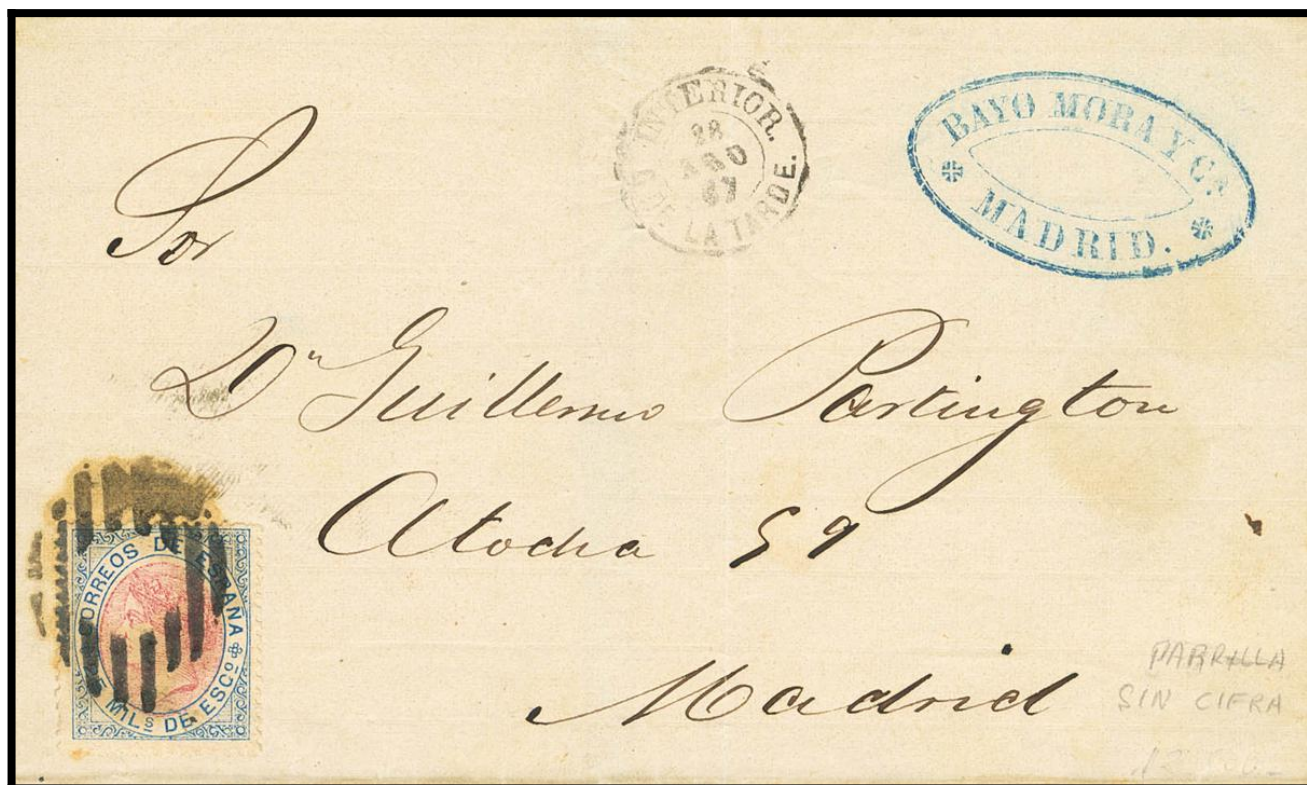 INTERIOR.
28
AGO
67
DE LA TARDE.
BAYO MORA Y Cª
MADRID.
Sor
Dn Guillermo Partington
Atocha 59
Madrid
CORREOS DE ESPAÑA
MILS DE ESCO
PARRILLA
SIN CIFRA